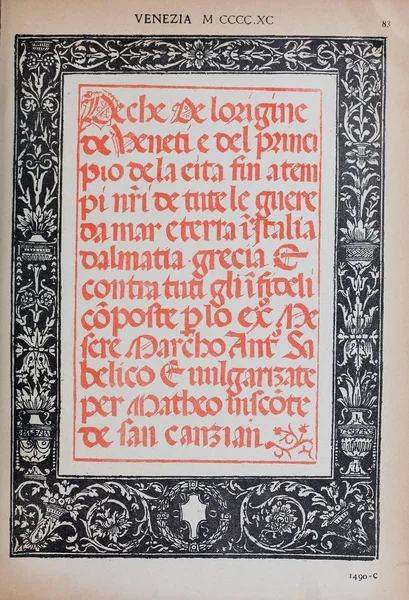 VENEZIA M CCCC.XC
83
Deche De lorigine
de Veneti e del princi
pio de la cita fin a tem
pi nr̃i de tute le guere
da mar e terra ĩ Italia
dalmatia grecia E
contra tuti gli ĩfideli
cõposte p̱ lo exͦ Me
sere Marcho Antͦ Sa
belico E vulgarizate
per Matheo viscõte
de san canzian
1490-C